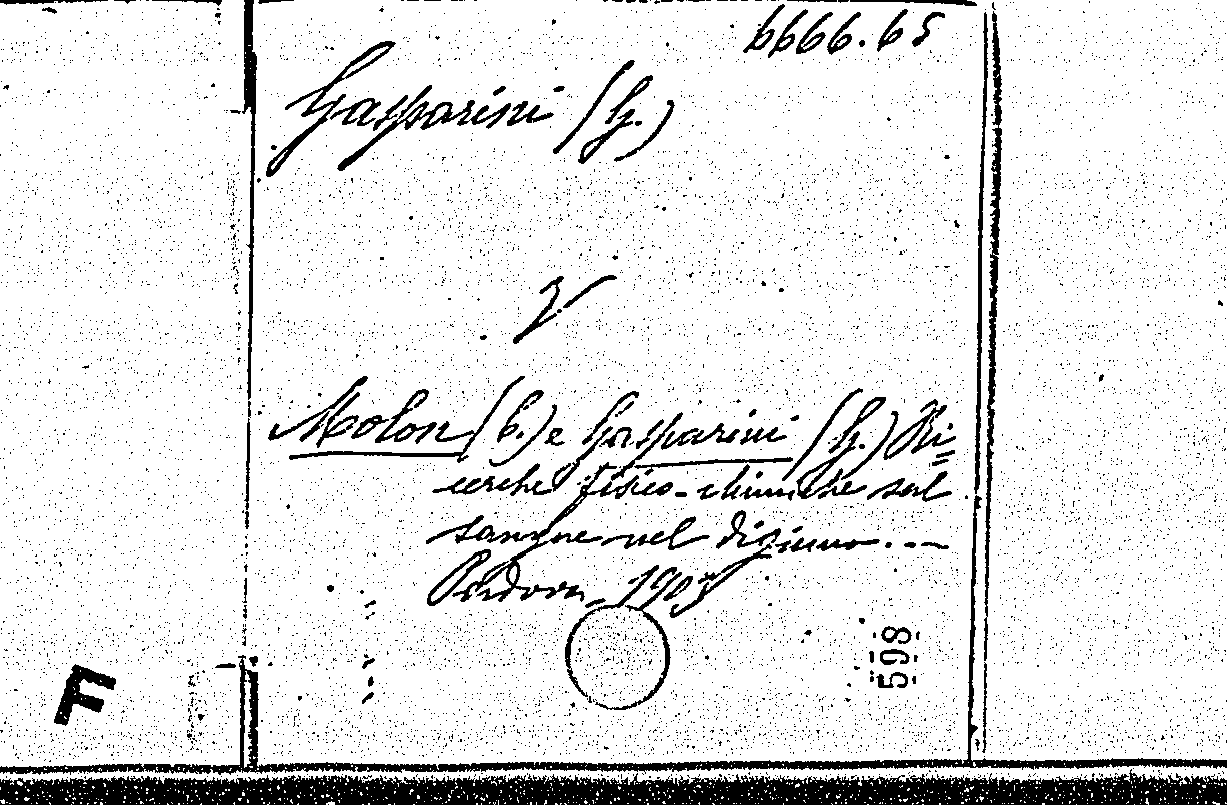 6666.65
Gasparini (G.)
V
Molon (C.) e Gasparini (G.) Ri=
cerche fisico-chimiche sul
sangue nel digiuno...
Padova, 1903
598
F